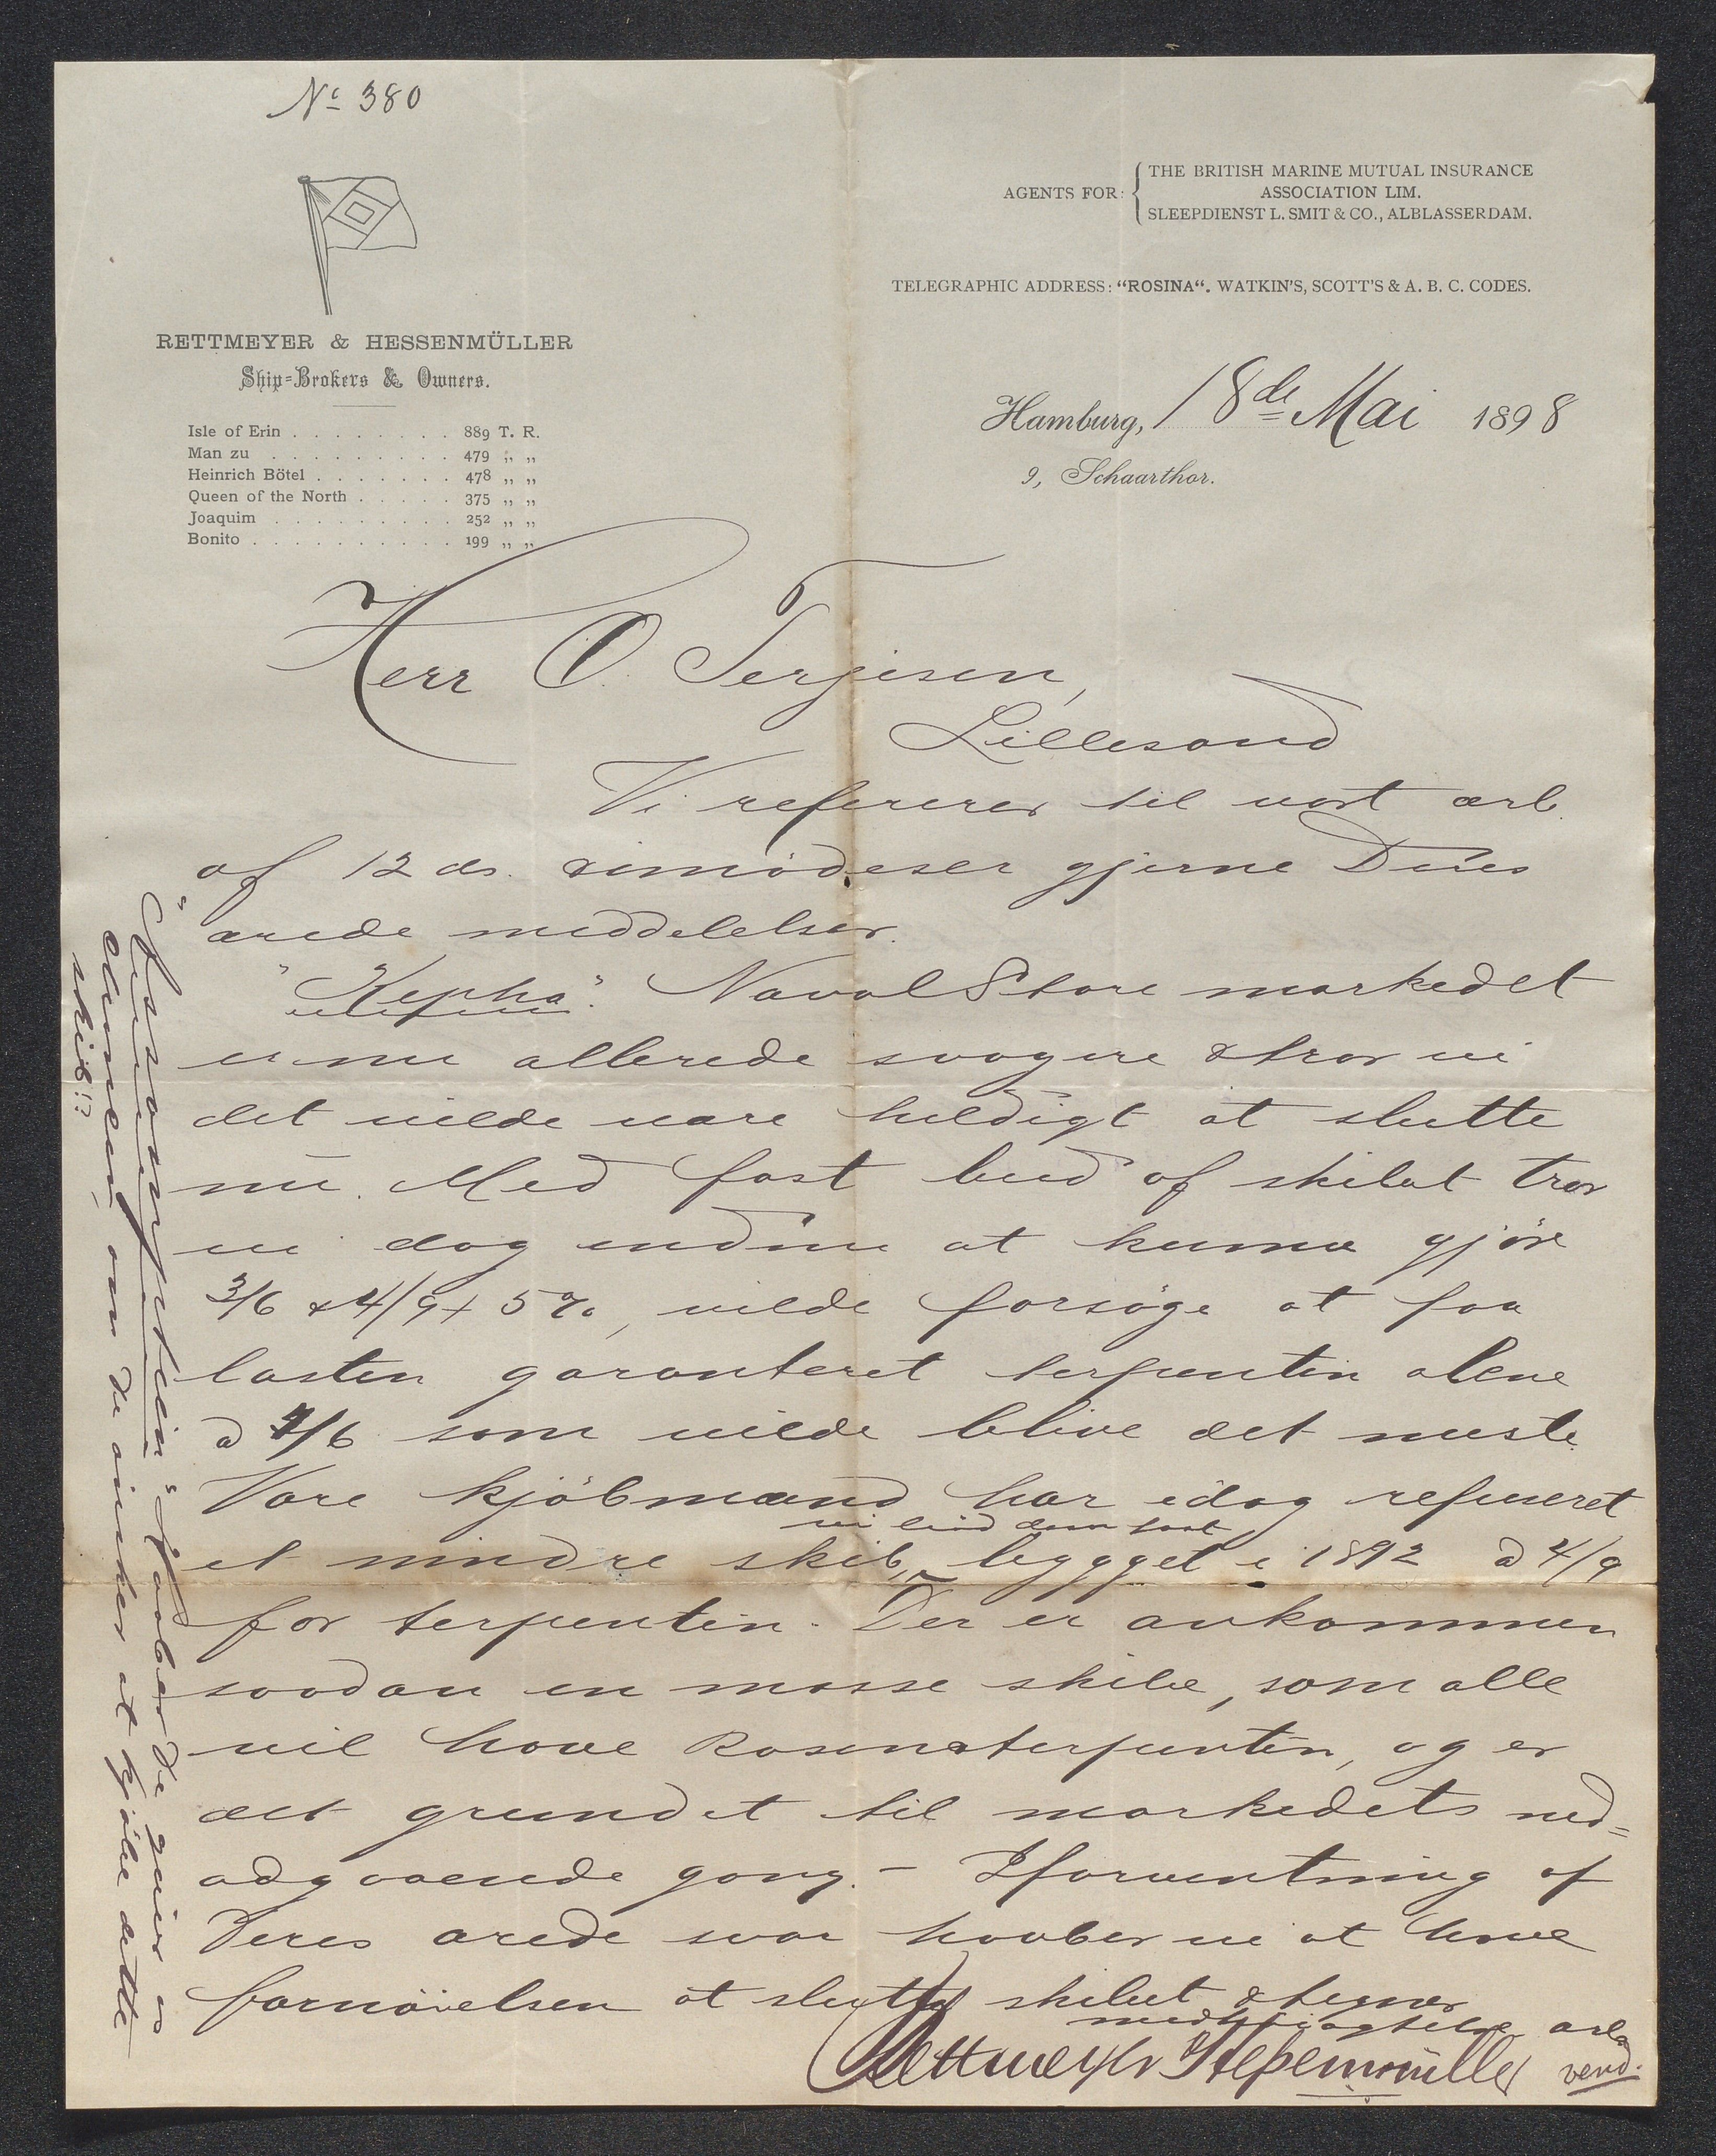 Nº 380
AGENTS FOR: THE BRITISH MARINE MUTUAL INSURANCE
ASSOCIATION LIM.
SLEEPDIENST L. SMIT & CO., ALBLASSERDAM.
TELEGRAPHIC ADDRESS: “ROSINA“. WATKIN'S, SCOTT'S & A. B. C. CODES.
RETTMEYER & HESSENMÜLLER
Ship-Brokers & Owners.
Isle of Erin . . . . . . . . 889 T. R.
Man zu . . . . . . . . . 479 „ „
Heinrich Bötel . . . . . . . 478 „ „
Queen of the North . . . . . 375 „ „
Joaquim . . . . . . . . . 252 „ „
Bonito . . . . . . . . . . 199 „ „
Hamburg, 18de Mai 1898
9, Schaarthor.
Herr O. Terjesen,
Lillesand
Vi refererer til vort ærb.
af 12 ds. & imødeser gjerne Deres
ærede meddelelser.
"Kepha". Naval Store markedet
er nu allerede svagere & tror vi
det vilde være heldigt at slutte
nu. Med fast bud af skibet tror
vi dog endnu at kunne gjöre
3/6 & 4/9 + 5 %, vilde forsöge at faa
lasten garanteret terpentin alene
a 4/6 som vilde blive det meste
Vore kjöbmænd har idag refuseret
et mindre skib, vi bud dem fast bygget i 1892 a 4/9
for terpentin. Der er ankommen
saadan en masse skibe, som alle
vil have Rosenaterpentin, og er
det grundet til markedets ned=
adgaaende gang. - I forventning af
Deres ærede svar haaber vi at have
fornöielsen at slutte skibet & tegner
med höiagtelse ærb.
Rettmeyer & Hessenmüller
vend.
haaber De giver os
om De önsker at kjöbe dette
skib!?